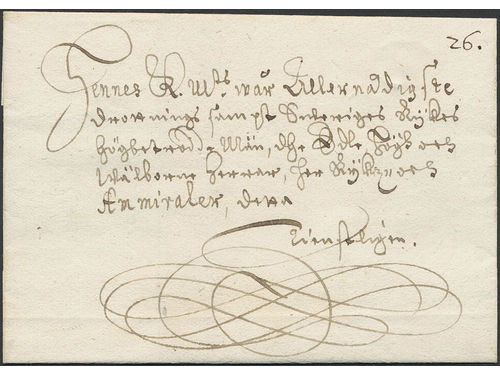 26.
Hennes K. Mtts wår Allernådigste
Drottnings sampt Sweriges Rijkes
högbetrodde Män, dhe Edle Höge och
Wälborne Herrar, Her Rijkz och
Ammiraler, dena
tienstligen.